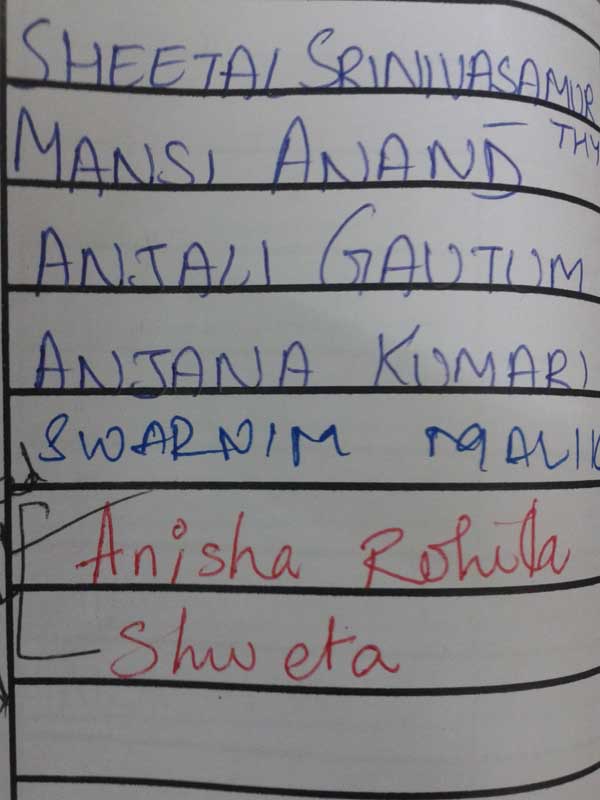 SHEETAL SRINIVASAMUR
THY
MANSI ANAND
ANJALI GAUTUM
ANJANA KUMARI
SWARNIM MALIK
Anisha Rohilla
Shweta